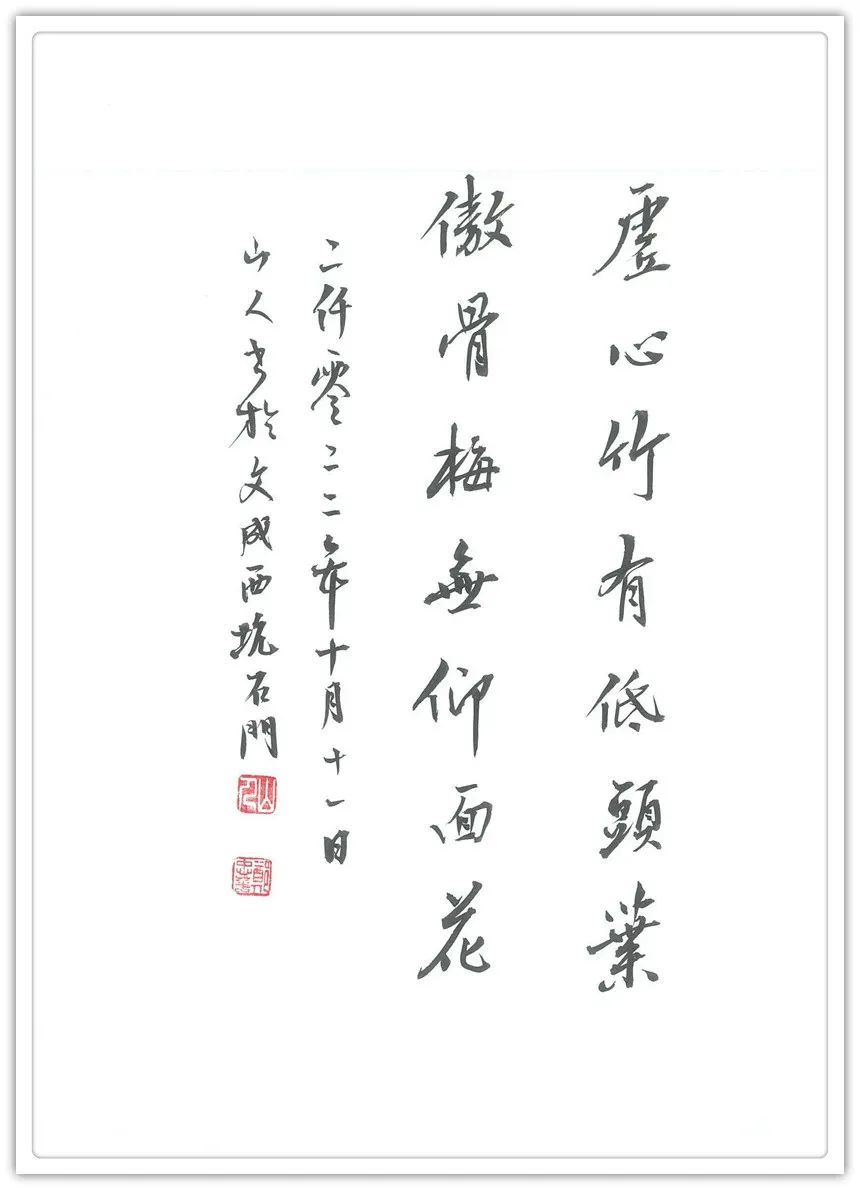 虚心竹有低頭葉
傲骨梅無仰面花
二仟零二二年十月十一日
山人书於文成西坑石門
山人